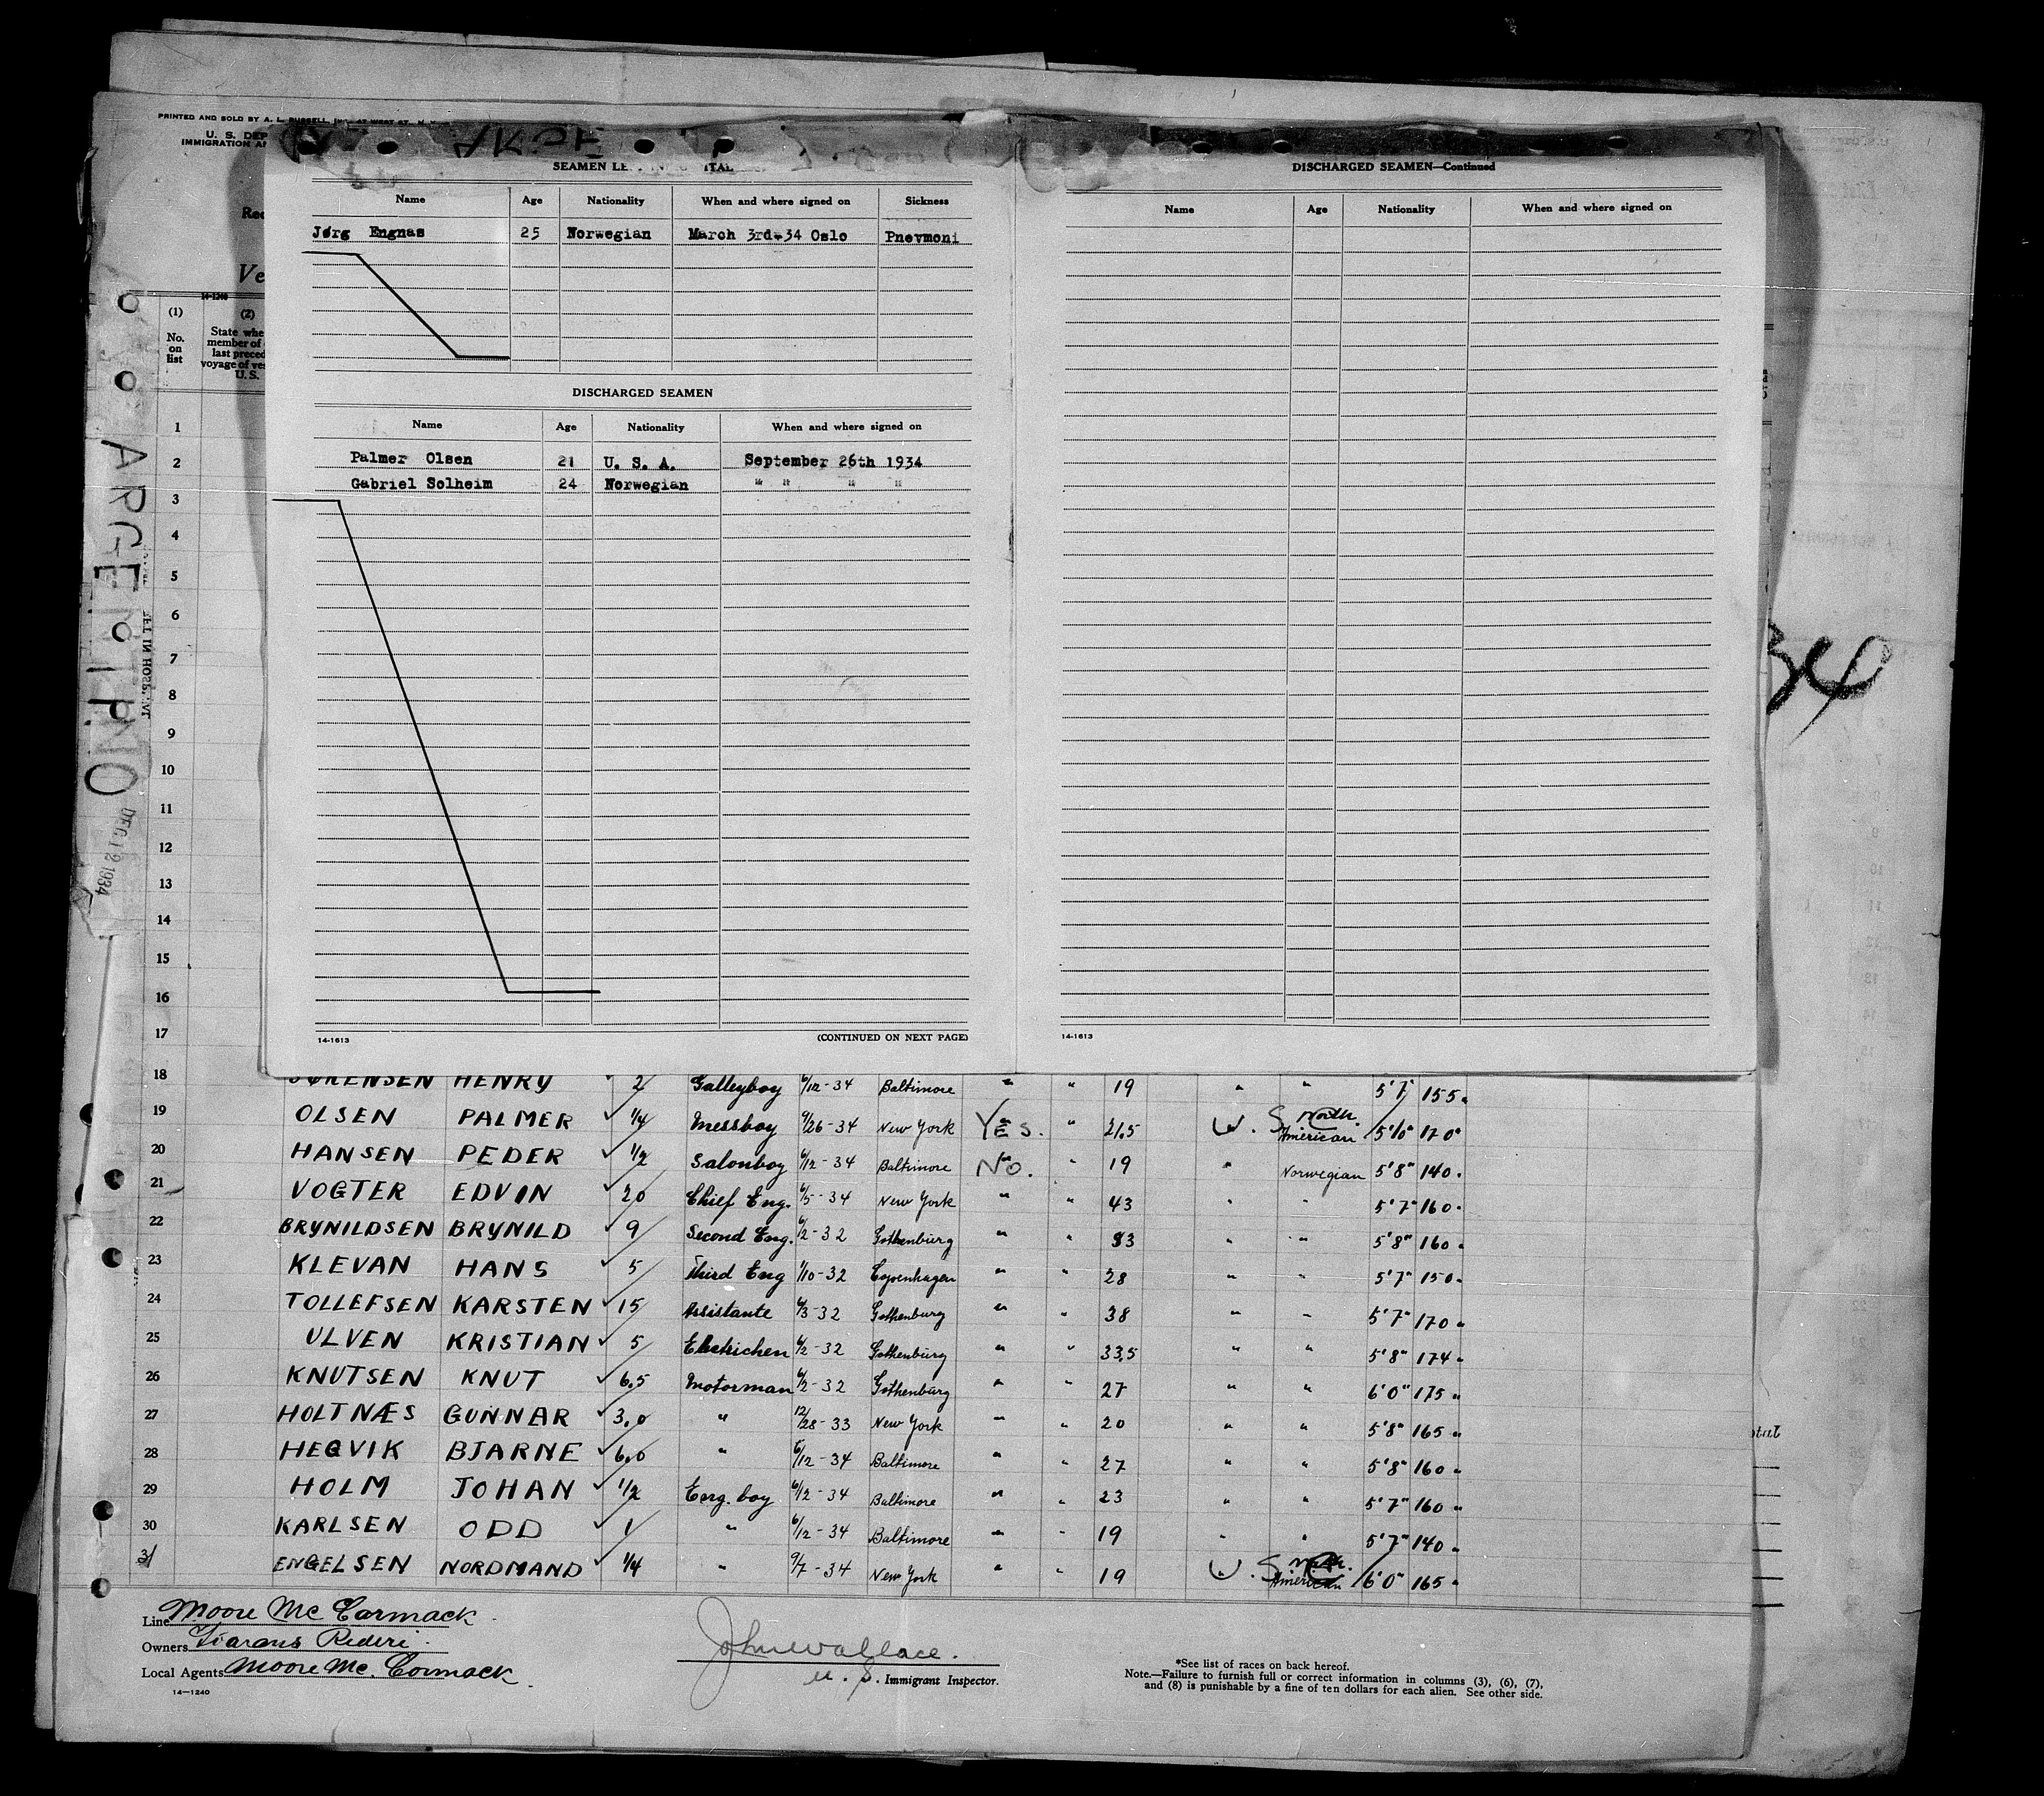 PRINTED AND SOLD BY A. L. RUSSELL,
U. S. DEP
IMMIGRATION AN
Rec
Ve
14-1240
(1) (2)
No. on list
State whe
member of
last preced
voyage of ves
U. S.
ARGENTINO
DEC 12 1934
34
SEAMEN LE ITAL
Name Age Nationality When and where signed on Sickness
Jørg Engnas 25 Norwegian March 3rd-34 Oslo Pnevmoni
DISCHARGED SEAMEN
Name Age Nationality When and where signed on
Palmer Olsen 21 U. S. A. September 26th 1934
Gabriel Solheim 24 Norwegian " " " "
14-1613 (CONTINUED ON NEXT PAGE)
DISCHARGED SEAMEN—Continued
Name Age Nationality When and where signed on
14-1613
1
2
3
4
5
6
7
8
9
10
11
12
13
14
15
16
17
18 SØRENSEN HENRY ✓ 2 Galleyboy 6/12-34 Baltimore " " 19 " " 5'7" 155
19 OLSEN PALMER ✓ 1/4 Messboy 9/26-34 New York Yes. " 21.5 U. S. North American 5'10" 170
20 HANSEN PEDER ✓ 1/2 Salonboy 6/12-34 Baltimore No. " 19 " Norwegian 5'8" 140
21 VOGTER EDVIN ✓ 20 Chief Eng. 6/5-34 New York " " 43 " " 5'7" 160
22 BRYNILDSEN BRYNILD ✓ 9 Second Eng. 6/2-32 Gothenburg " " 33 " " 5'8" 160
23 KLEVAN HANS ✓ 5 Third Eng 1/10-32 Copenhagen " " 28 " " 5'7" 150
24 TOLLEFSEN KARSTEN ✓ 15 Assistante 6/3-32 Gothenburg " " 38 " " 5'7" 170
25 ULVEN KRISTIAN ✓ 5 Electrichen 6/2-32 Gothenburg " " 33.5 " " 5'8" 174
26 KNUTSEN KNUT ✓ 6.5 Motorman 6/2-32 Gothenburg " " 27 " " 6'0" 175
27 HOLTNÆS GUNNAR ✓ 3.0 " 12/28-33 New York " " 20 " " 5'8" 165
28 HEGVIK BJARNE ✓ 6.0 " 6/12-34 Baltimore " " 27 " " 5'8" 160
29 HOLM JOHAN ✓ 1/2 Eng. boy 6/12-34 Baltimore " " 23 " " 5'7" 160
30 KARLSEN ODD ✓ 1 " 6/12-34 Baltimore " " 19 " " 5'7" 140
31 ENGELSEN NORDMAND ✓ 1/4 " 9/7-34 New York " " 19 U. S. American 6'0" 165
Line Moore Mc Cormack
Owners Ivarans Rederi
Local Agents Moore Mc. Cormack
14—1240
John Wallace.
U. S. Immigrant Inspector.
*See list of races on back hereof.
Note.—Failure to furnish full or correct information in columns (3), (6), (7),
and (8) is punishable by a fine of ten dollars for each alien. See other side.